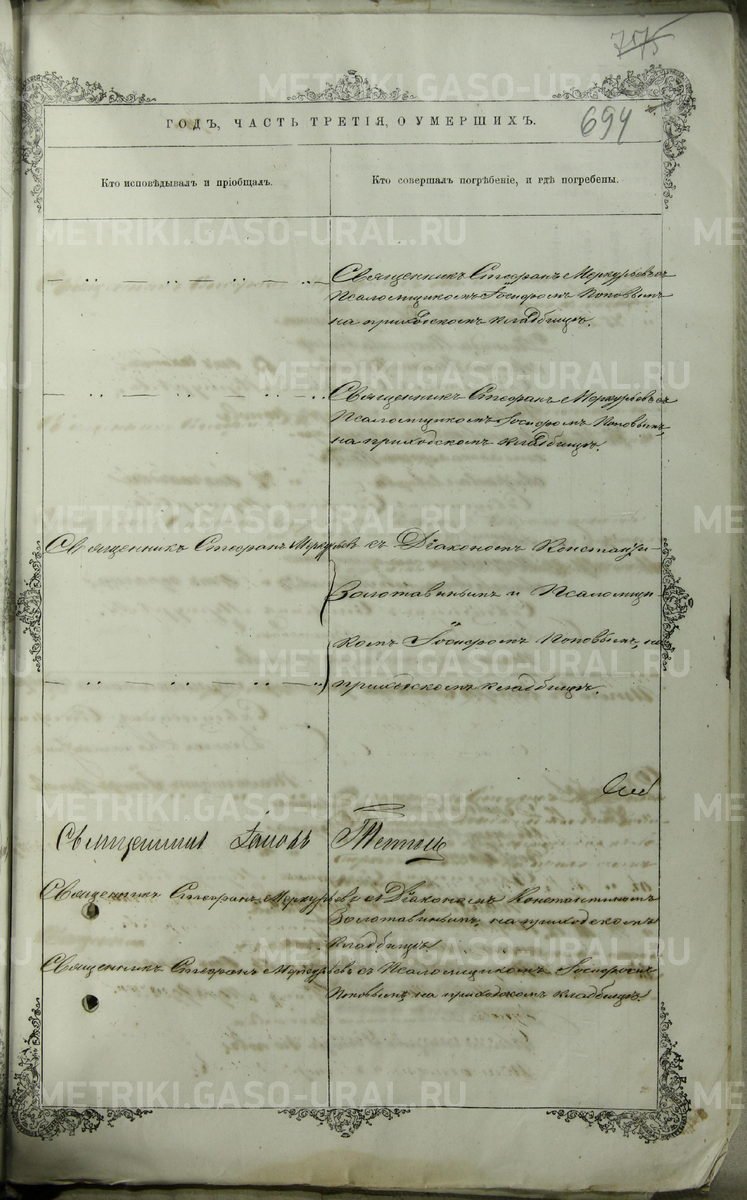 775
694
ГОДЪ, ЧАСТЬ ТРЕТІЯ, О УМЕРШИХЪ.
Кто исповѣдывалъ и пріобщалъ.
Кто совершалъ погребеніе, и гдѣ погребены.
Священникъ Стефанъ Меркурьевъ съ
Псаломщикомъ Іосифомъ Поповымъ
на приходскомъ кладбищѣ.
Священникъ Стефанъ Меркурьевъ съ
Псаломщикомъ Іосифомъ Поповымъ,
на приходскомъ кладбищѣ.
Священникъ Стефанъ Меркурьевъ съ Діакономъ
Золотавинымъ и Псаломщи-
комъ Іосифомъ Поповымъ, на
приходскомъ кладбищѣ.
Священникъ
Священникъ Стефанъ Меркурьевъ съ Діакономъ Константиномъ
Золотавинымъ, на приходскомъ
кладбищѣ
Священникъ Стефанъ Меркурьевъ съ Псаломщикомъ Іосифомъ
Поповымъ на приходскомъ кладбищѣ.
METRIKI.GASO-URAL.RU